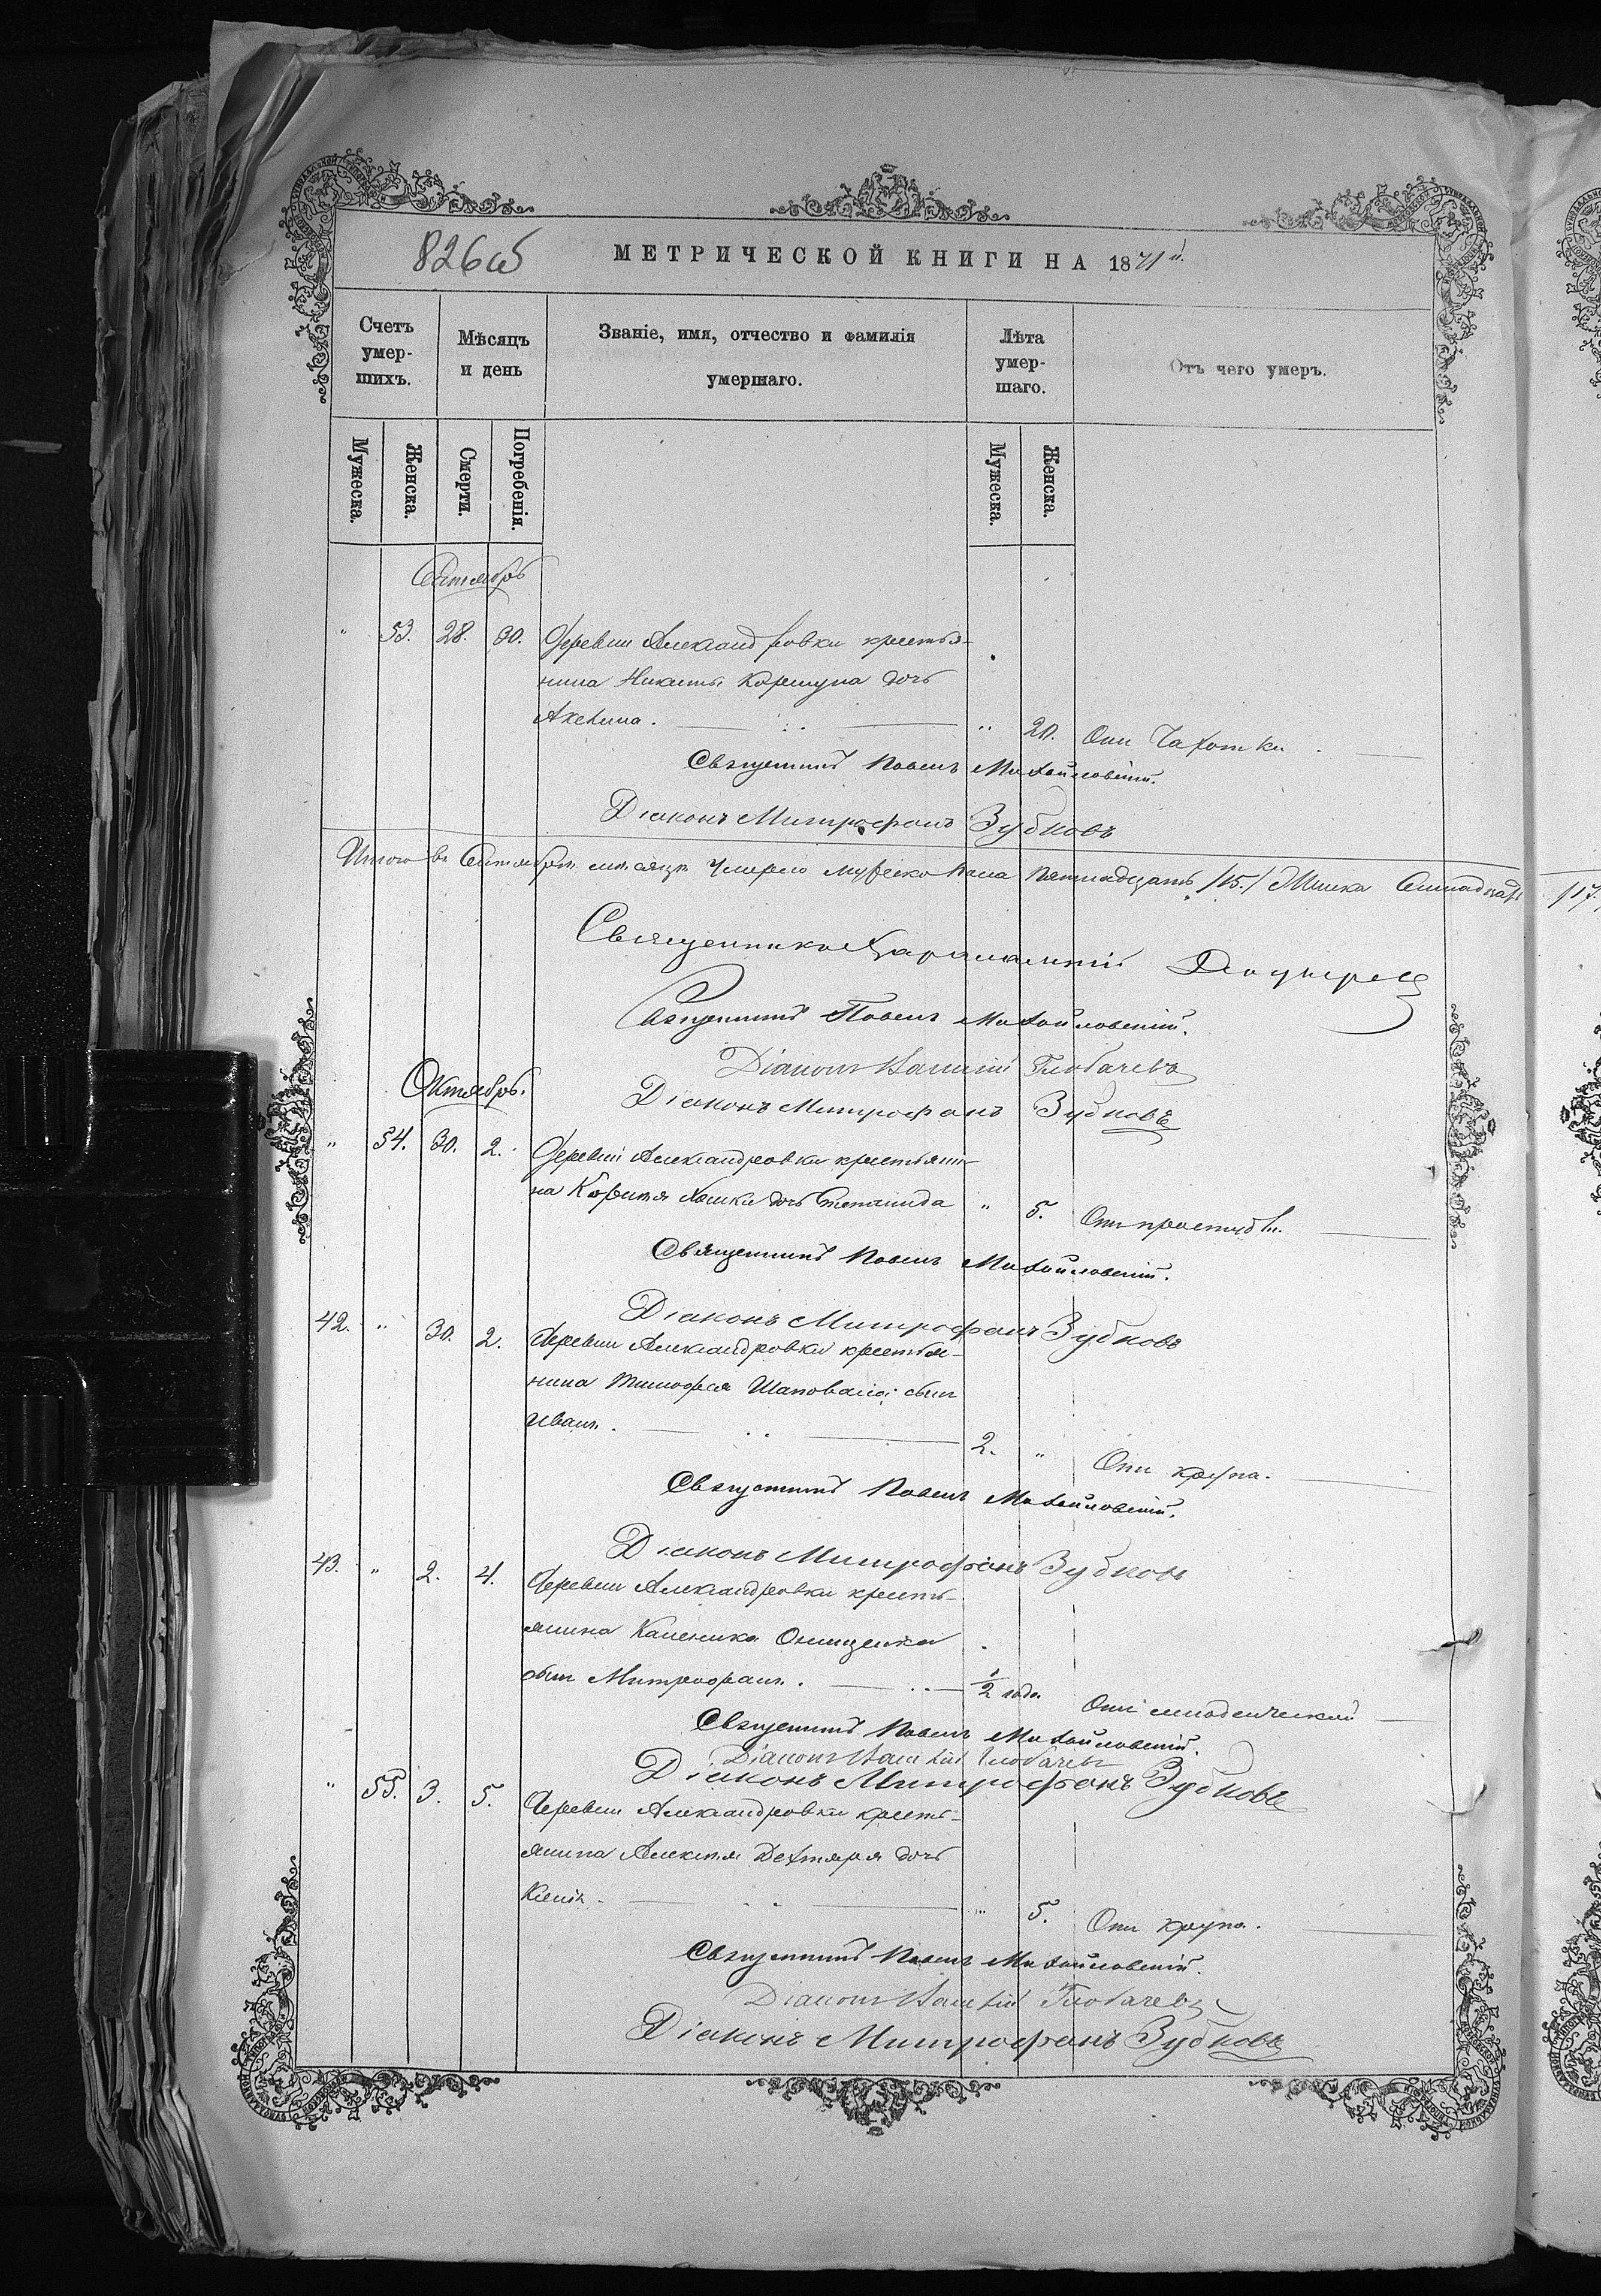 826об
МЕТРИЧЕСКОЙ КНИГИ НА 1871й.
Счетъ умер- шихъ.
Мѣсяцъ и день
Званіе, имя, отчество и фамилія умершаго.
Лѣта умер- шаго.
Отъ чего умеръ.
Мужеска. Женска. Смерти. Погребенія. Мужеска. Женска.
Сентябрь
" 53. 28. 30. Деревни Александровки крестья-
нина Никиты Коршуна дочь
Акелина. " 20. Отъ Чахотки.
Священникъ Павелъ Михайловскій.
Діаконъ Митрофанъ Зубковъ
Итого въ Сентябрѣ мѣсяцѣ Умерло мужеска пола пятнадцать /15./ Женска Семнадцать /17.
Священникъ Харалампій
Священникъ Павелъ Михайловскій.
Діаконъ Глобачевъ
Діаконъ Митрофанъ Зубковъ
Октябрь.
" 54. 30. 2. Деревни Александровки крестьяни-
на дочь Степанида " 5. Отъ простуды.
Священникъ Павелъ Михайловскій.
Діаконъ Митрофанъ Зубковъ
42. " 30. 2. Деревни Александровки крестья-
нина Тимофея Шаповала сынъ
Иванъ. 2. " Отъ крупа.
Священникъ Павелъ Михайловскій.
Діаконъ Митрофанъ Зубковъ
43. " 2. 4. Деревни Александровки кресть-
янина Каленика Онищенка
сынъ Митрофанъ. 1/2 года Отъ младенческой
Священникъ Павелъ Михайловскій.
Діаконъ Глобачевъ
Діаконъ Митрофанъ Зубковъ
" 55. 3. 5. Деревни Александровки кресть-
янина Алексѣя Дехтяря дочь
Ксенія. " 5. Отъ крупа.
Священникъ Павелъ Михайловскій.
Діаконъ Глобачевъ
Діаконъ Митрофанъ Зубковъ